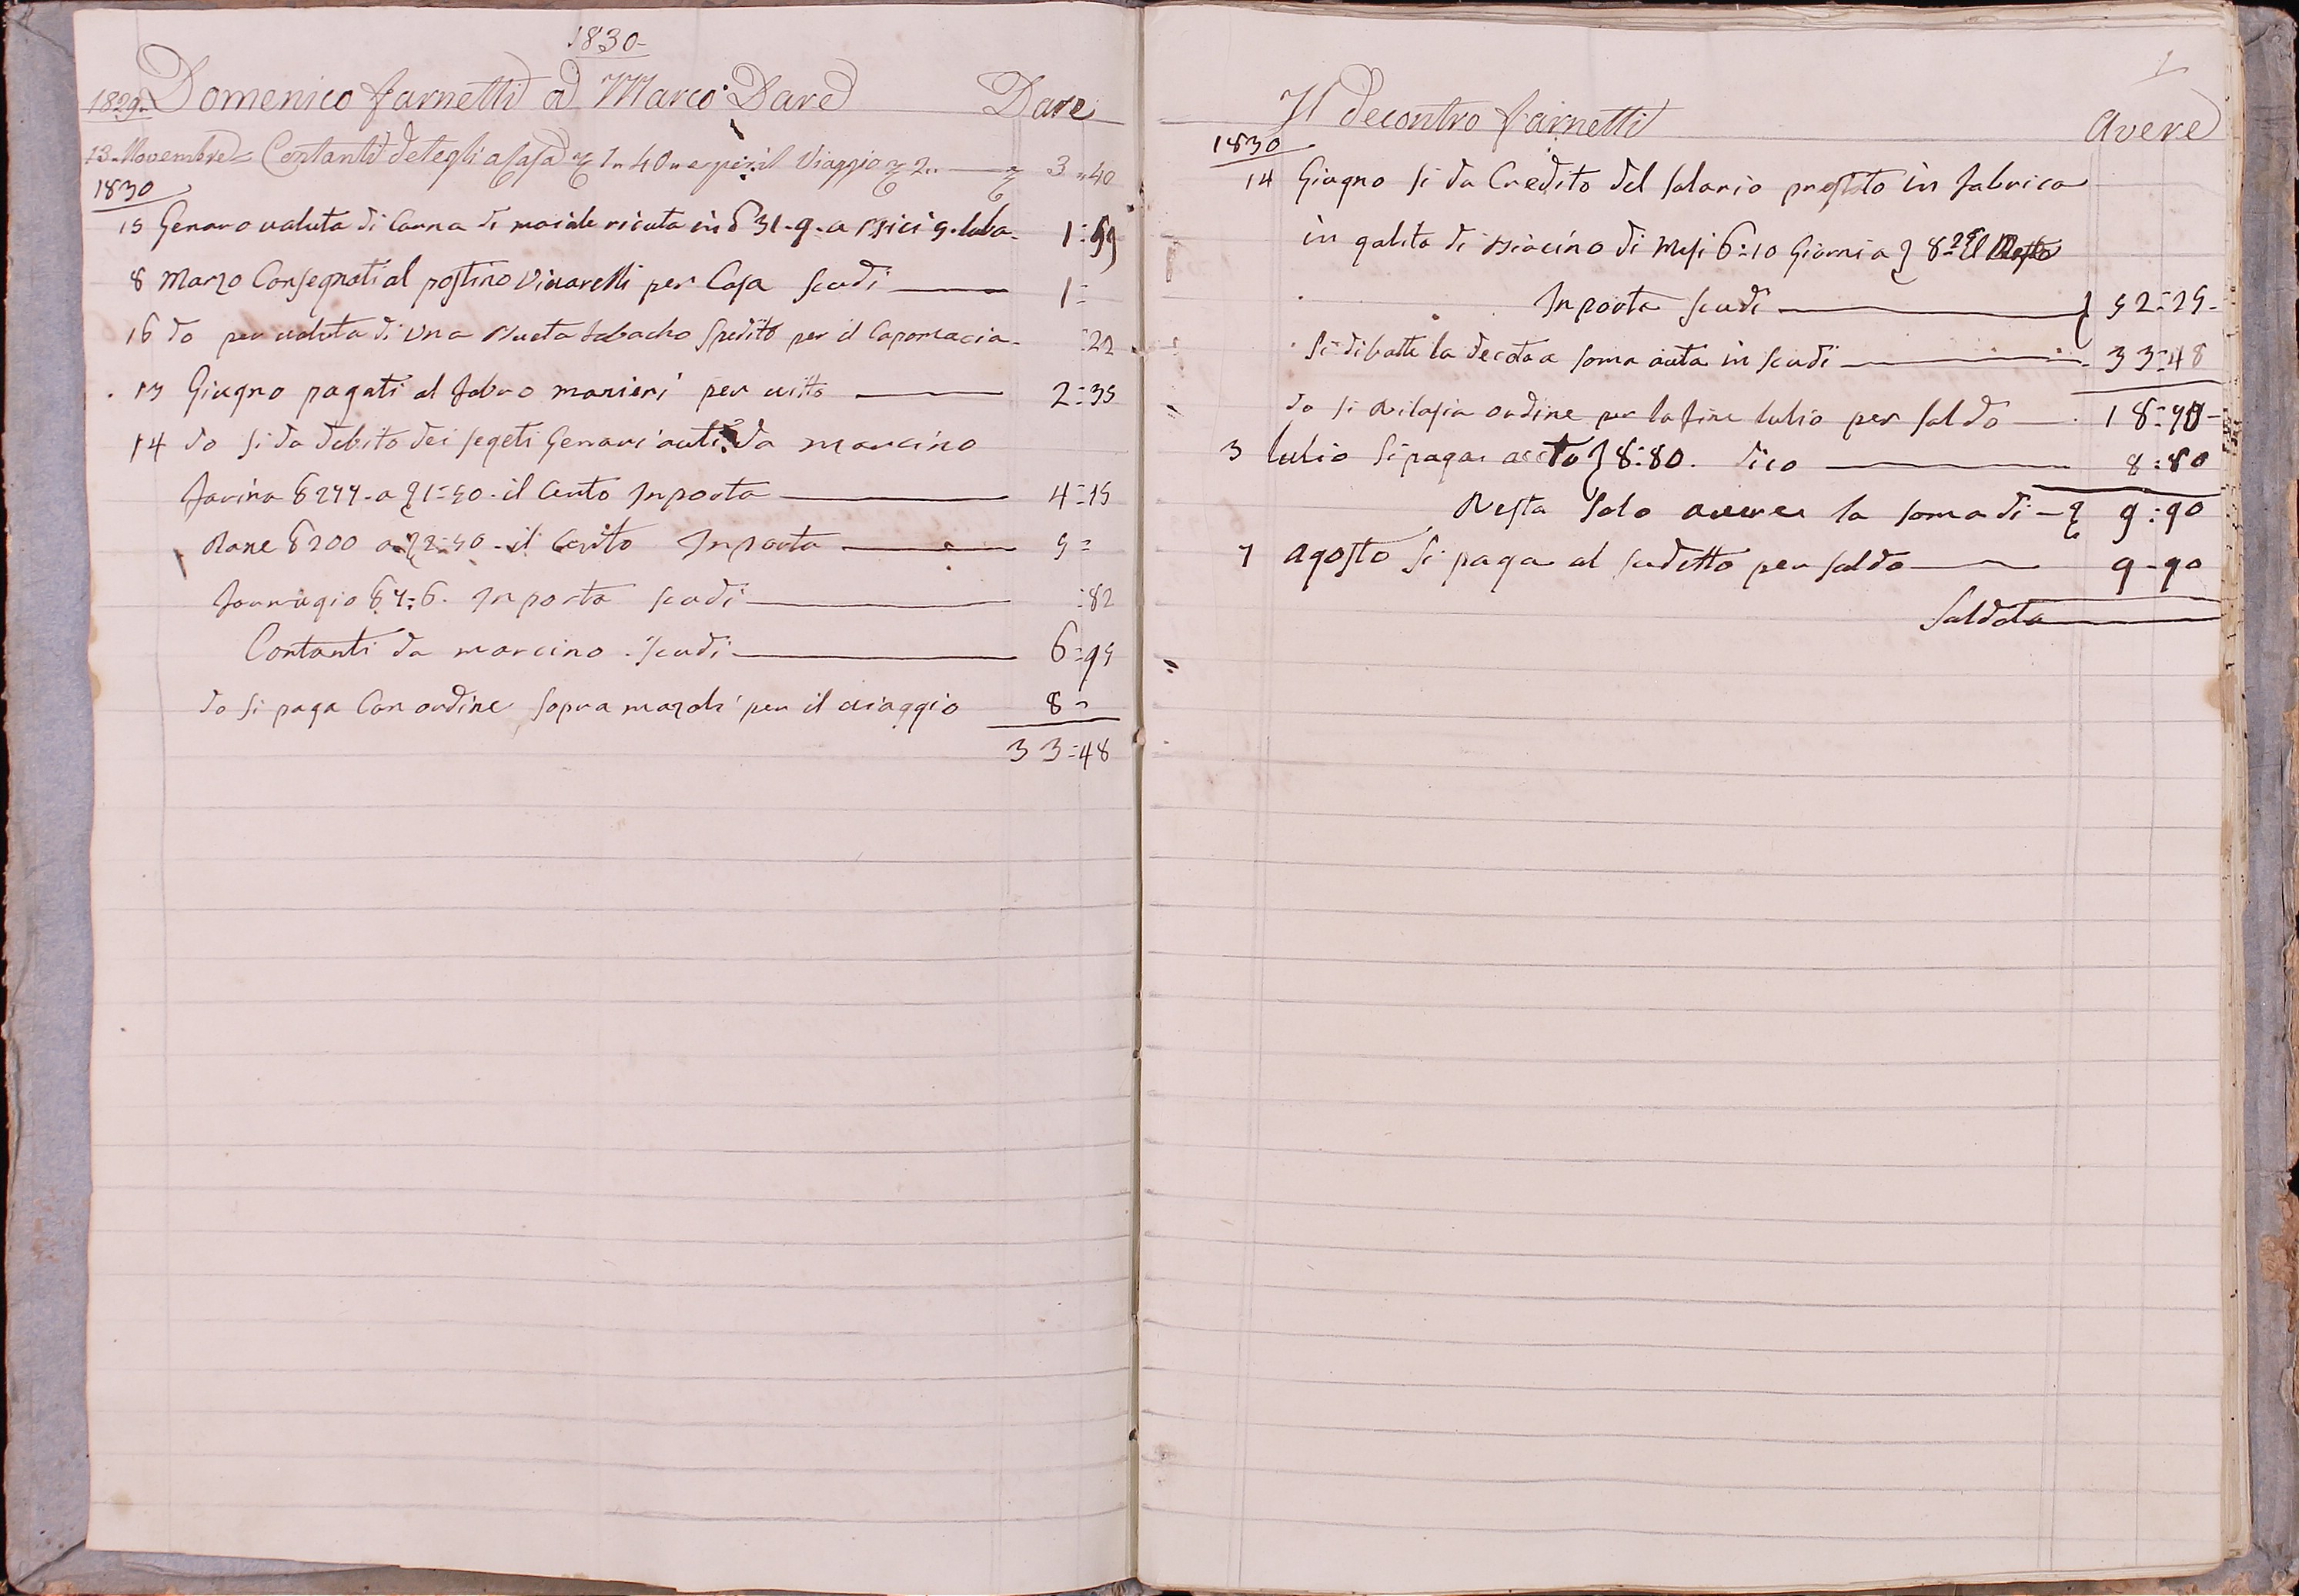 1830-
1829. Domenico Farnetti di Marco Dare Dare
13. Novembre Contanti detegli a Casa 1" 40" e per il Viaggio 2.. 3 " 40
1830
15 Genaro valuta di Carna di maiale riceuta in 31-9-a 1:59
8 Marzo Consegnati al postino Vinarelli per Casa scudi 1:
16 do per valuta di una tabacho spedito per il Capomacia :22
13 Giugno pagati al fabro manieri per vitto 2:35
14 do si da debito dei segeti Genari auti da marcino
farina 277-a 1=50-il Cento Inporta 4=15
Rane 200 a 2=50-il Cento Inporta 5=
formagio 7:6. Inporta scudi :82
Contanti da marcino scudi 6:95
do si paga Con ordine sopra mazoli per il viaggio 8=
33=48
1
Il decontro Farnetti Avere
1830
14 Giugno si da Credito del salario prestato in fabrica
in qalita di di Mesi 6=10 Giorni a 8=25 il
Inporta scudi 52=25-
si dibatte la decota soma auta in scudi 33=48
do si Rilasia ordine per la fine lulio per saldo 18=70-
3 lulio si paga accto 8:80. dico 8:80
Resta solo avere la soma di 9:90
7 Agosto si paga al sudetto per saldo 9-90
saldata